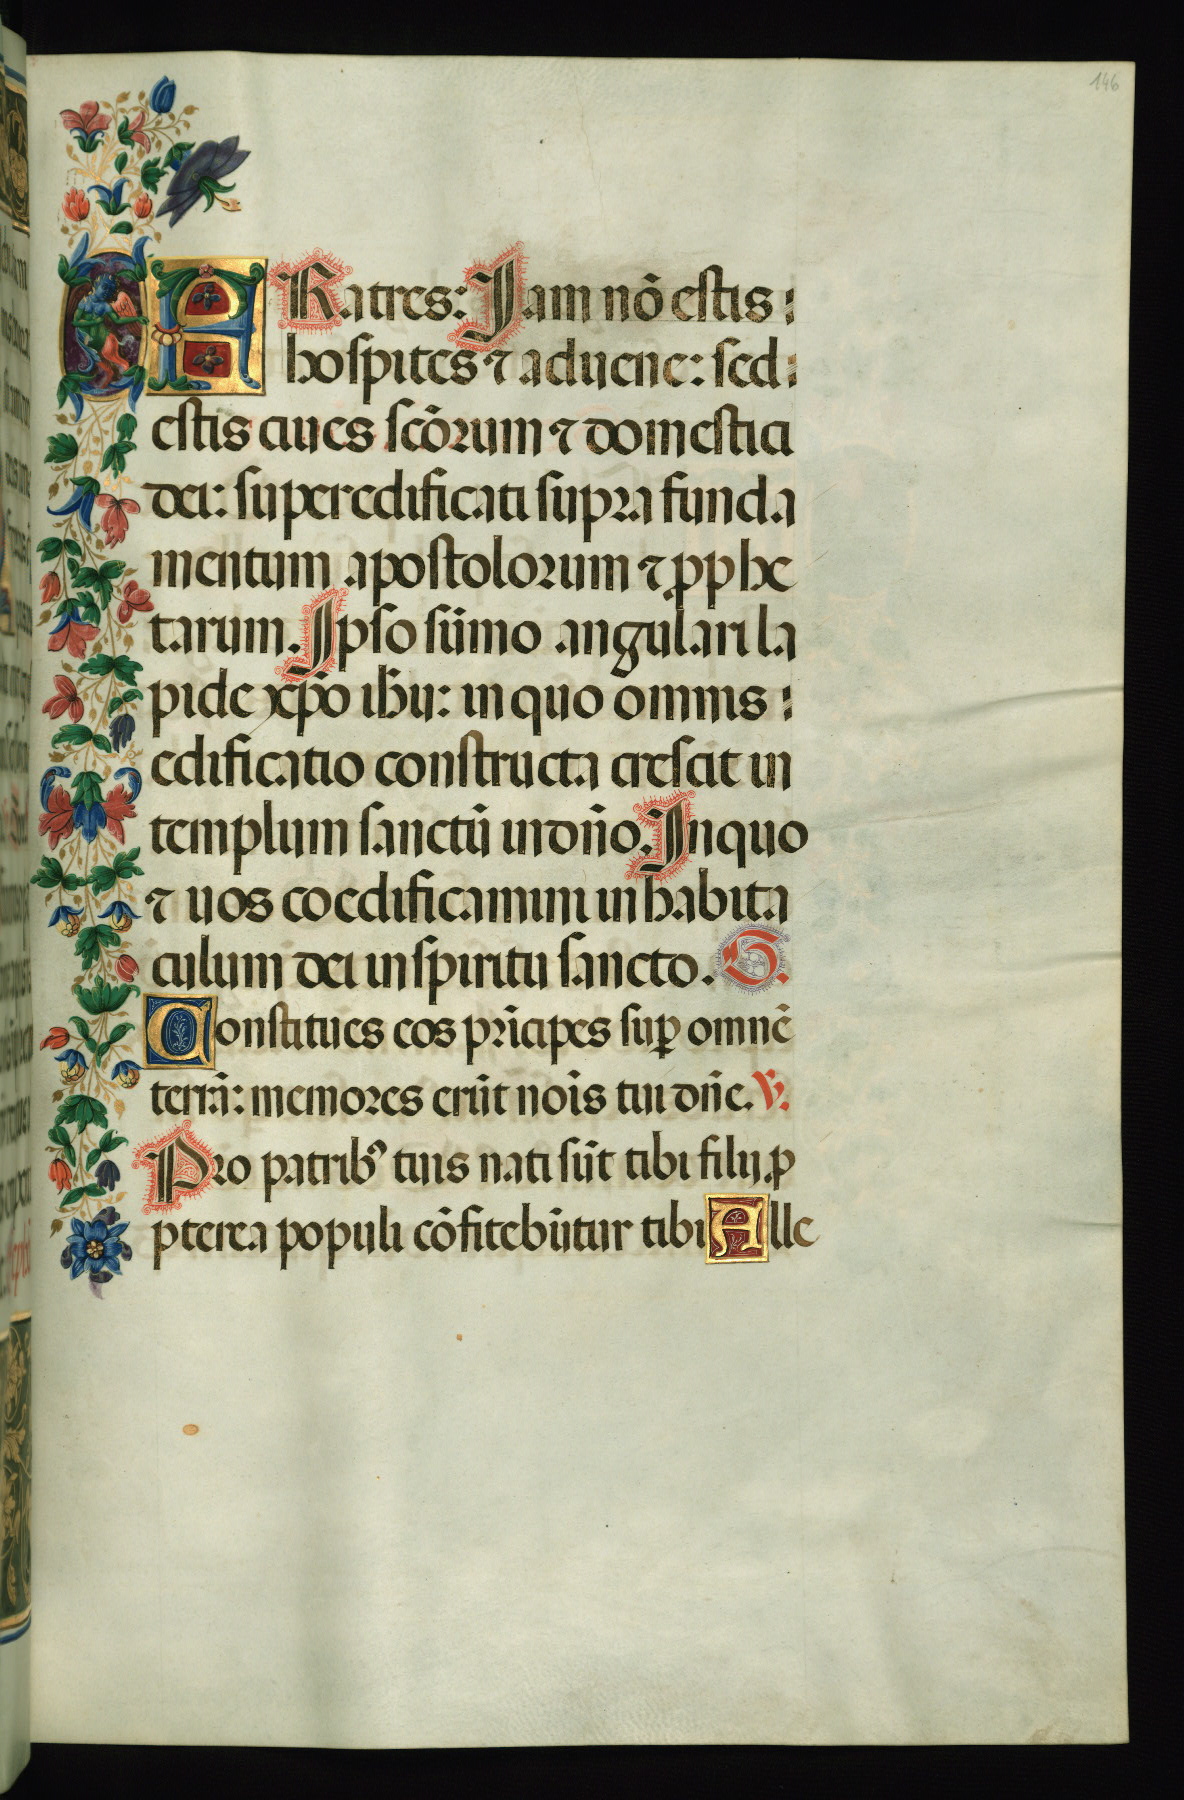 146
FRatres: Jam nō estis :
hospites ⁊ aduene: sed :
estis ciues scōrum ⁊ domestici
dei: superedificati supra funda
mentum apostolorum ⁊ ꝓphe
tarum. Ipso sūmo angulari la
pide xp̄o ih̄u: in quo omnis :
edificatio constructa crescit in
templum sanctū in dn̄o. In quo
⁊ uos coedificamini in habita
culum dei in spiritu sancto. G.
Constitues eos prīcipes suꝑ omnē
terrā: memores erūt nōis tui dn̄e. V.
Pro patribꝰ tuis nati sūt tibi filij. ꝓ
pterea populi cōfitebūtur tibi Alle